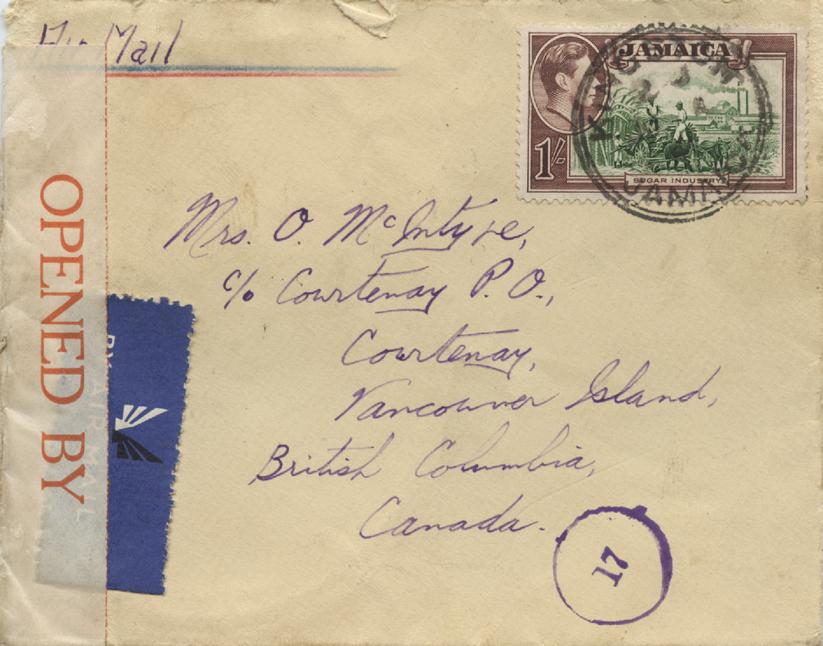 Air Mail
JAMAICA
1/-
SUGAR INDUSTRY
KINGSTON
JAMAICA
OPENED BY
BY AIR MAIL
Mrs. O. McIntyre,
c/o Courtenay P. O.,
Courtenay,
Vancouver Island,
British Columbia,
Canada.
17